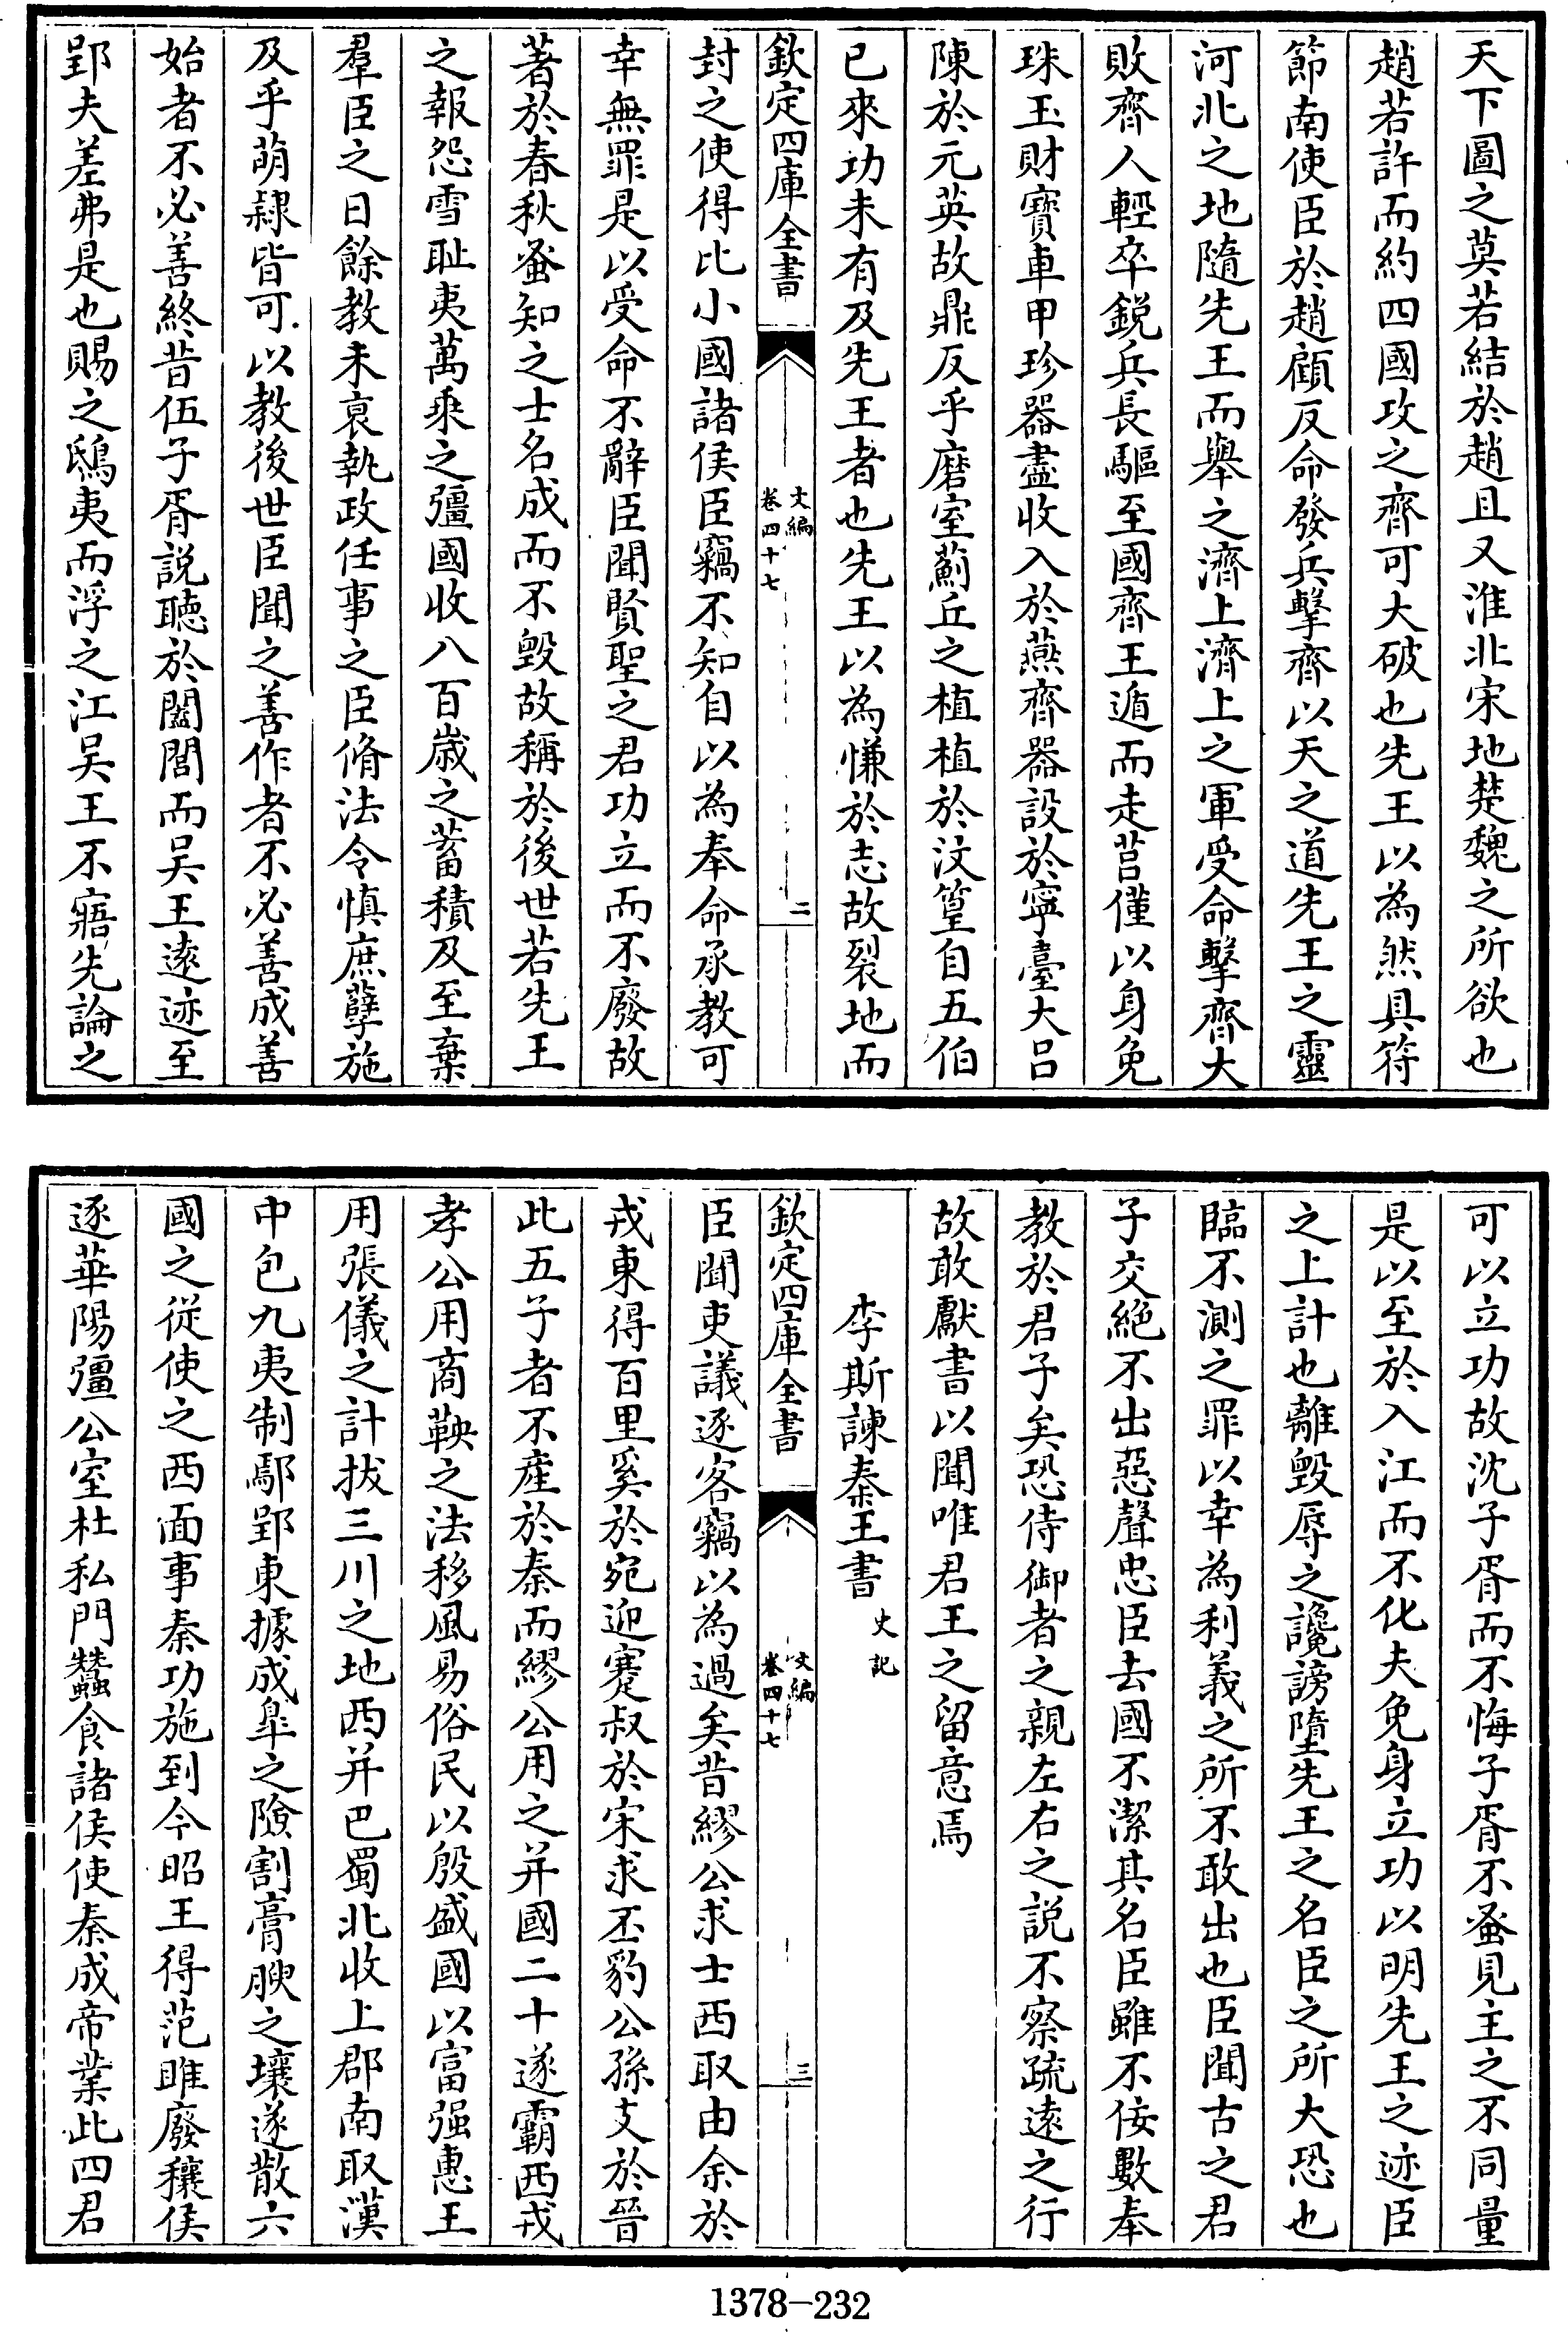 天下圖之莫若結於趙且又淮北宋地楚魏之所欲也
趙若許而約四國攻之齊可大破也先王以為然具符
節南使臣於趙顧反命發兵擊齊以天之道先王之靈
河北之地隨先王而舉之濟上濟上之軍受命擊齊大
敗齊人輕卒鋭兵長驅至國齊王遁而走莒僅以身免
珠玉財寳車甲珍器盡收入於燕齊器設於寧臺大吕
陳於元英故鼎反乎磨室薊丘之植植於汶篁自五伯
已來功未有及先王者也先王以為慊於志故裂地而
欽定四庫全書 文編 卷四十七 二
封之使得比小國諸侯臣竊不知自以為奉命承教可
幸無罪是以受命不辭臣聞賢聖之君功立而不廢故
著於春秋蚤知之士名成而不毀故稱於後世若先王
之報怨雪耻夷萬乘之彊國收八百歳之蓄積及至棄
羣臣之日餘教未衰執政任事之臣脩法令慎庶孽施
及乎萌隸皆可以教後世臣聞之善作者不必善成善
始者不必善終昔伍子胥説聽於闔閭而吴王逺迹至
郢夫差弗是也賜之鴟夷而浮之江吴王不寤先論之
可以立功故沈子胥而不悔子胥不蚤見主之不同量
是以至於入江而不化夫免身立功以明先王之迹臣
之上計也離毀辱之讒謗墮先王之名臣之所大恐也
臨不測之罪以幸為利義之所不敢出也臣聞古之君
子交絶不出惡聲忠臣去國不潔其名臣雖不佞數奉
教於君子矣恐侍御者之親左右之説不察疏逺之行
故敢獻書以聞唯君王之留意焉
李斯諫秦王書 史記
欽定四庫全書 文編 卷四十七 三
臣聞吏議逐客竊以為過矣昔繆公求士西取由余於
戎東得百里奚於宛迎蹇叔於宋求丕豹公孫支於晉
此五子者不産於秦而繆公用之并國二十遂霸西戎
孝公用商鞅之法移風易俗民以殷盛國以富强惠王
用張儀之計拔三川之地西并巴蜀北收上郡南取漢
中包九夷制鄢郢東據成臯之險割膏腴之壤遂散六
國之從使之西面事秦功施到今昭王得范雎廢穰侯
逐華陽彊公室杜私門蠶食諸侯使秦成帝業此四君
1378-232